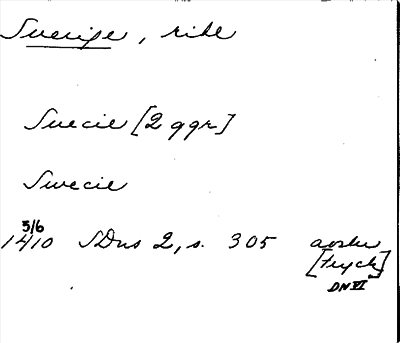 Sverige, rike
Suecie [2 ggr]
Swecie
5/6
1410 SDns 2, s. 305 avskr
[tryck]
DN VI